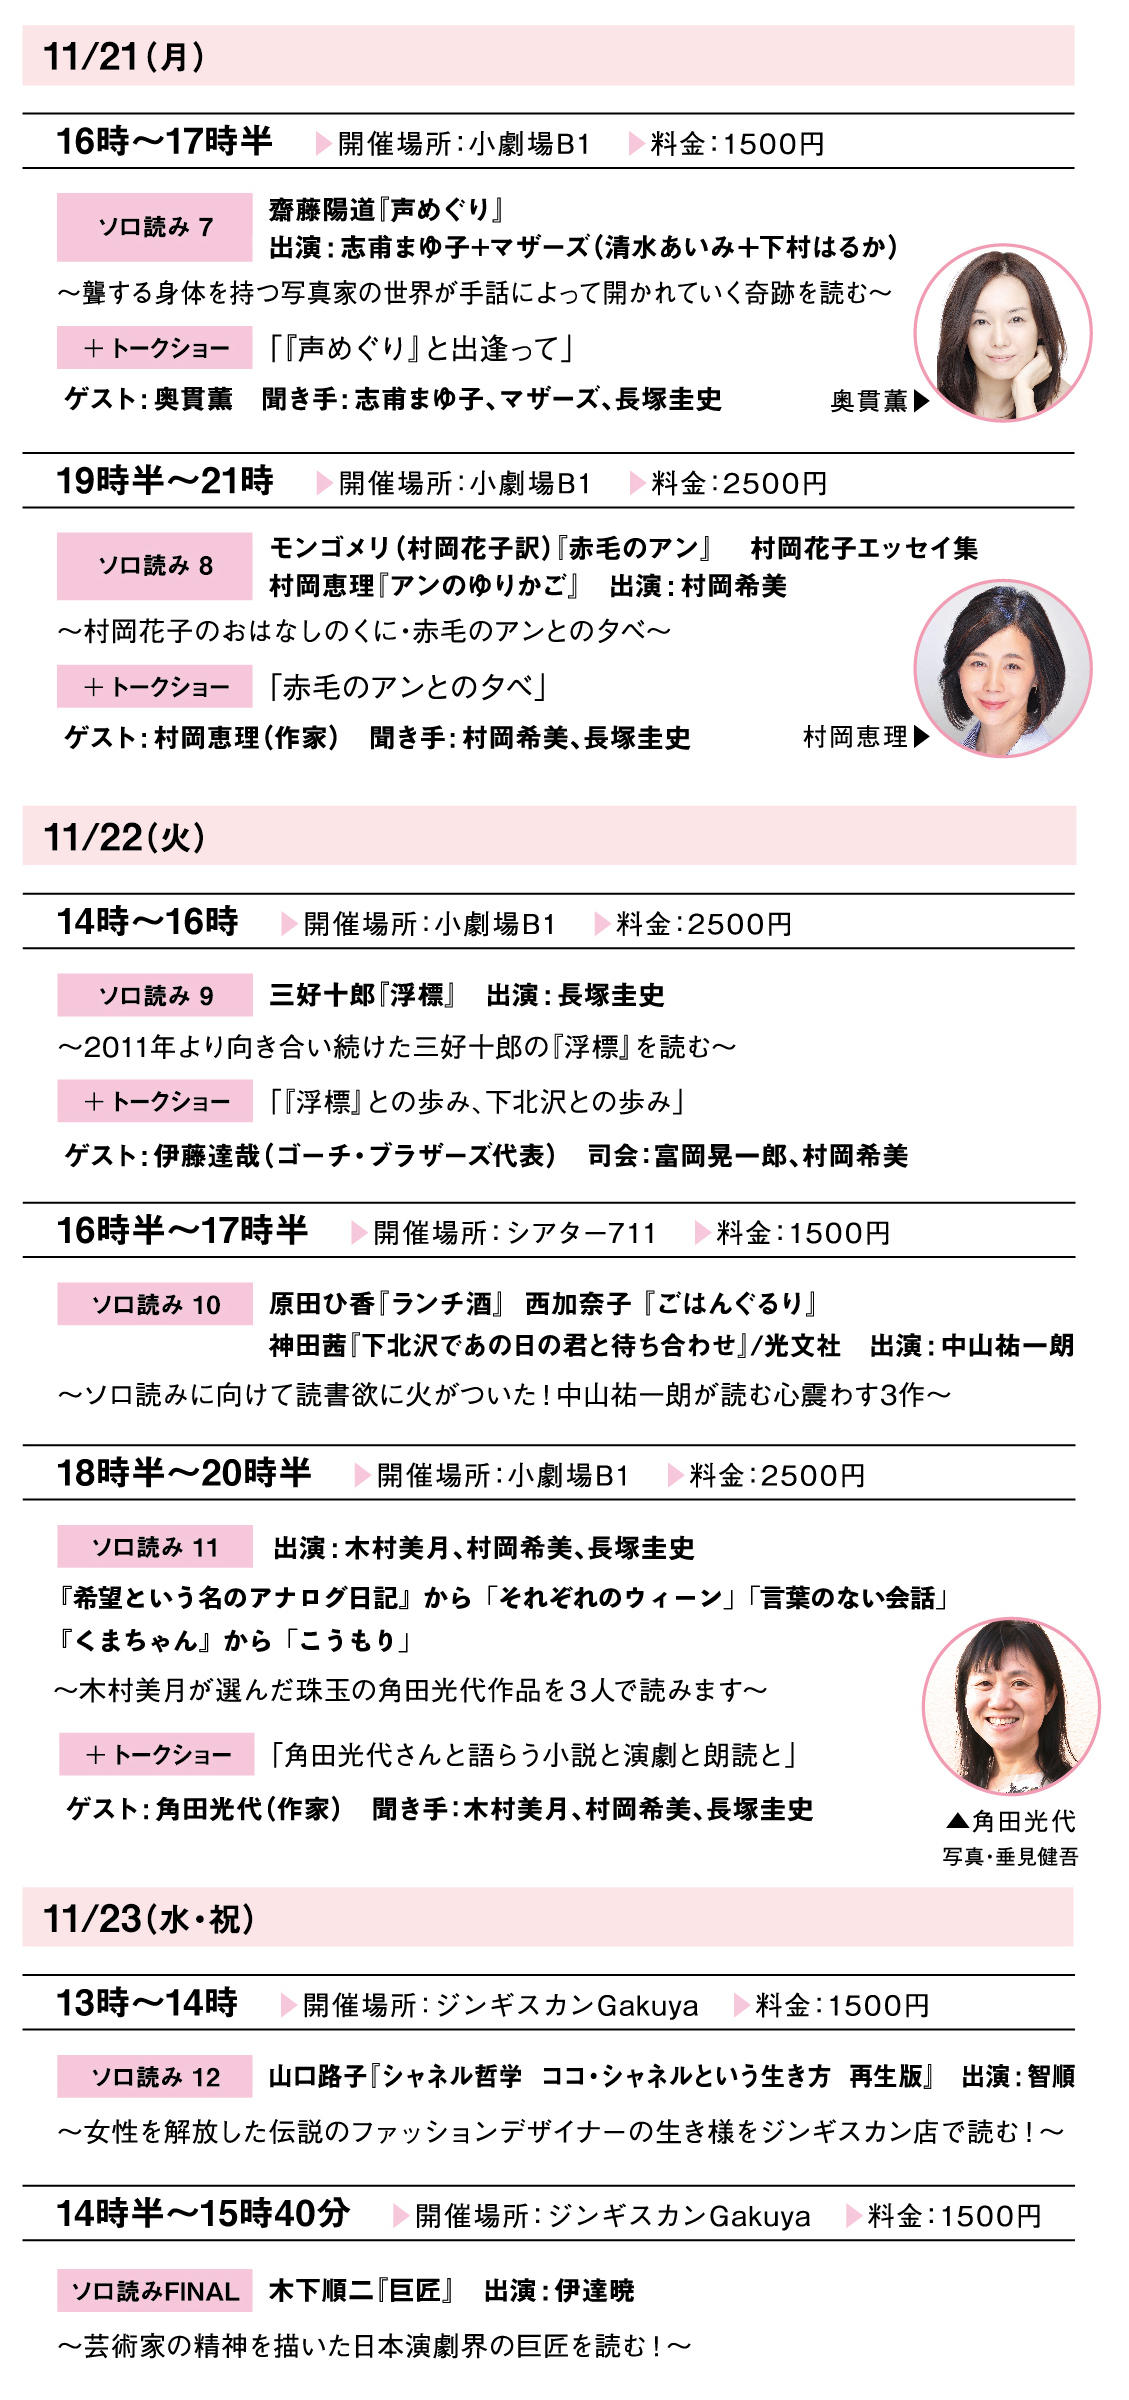 11/21（月）
16時〜17時半 ▶開催場所：小劇場B1 ▶料金：1500円
ソロ読み 7 齋藤陽道『声めぐり』
出演：志甫まゆ子＋マザーズ（清水あいみ＋下村はるか）
〜聾する身体を持つ写真家の世界が手話によって開かれていく奇跡を読む〜
＋トークショー 「『声めぐり』と出逢って」
ゲスト：奥貫薫　聞き手：志甫まゆ子、マザーズ、長塚圭史
奥貫薫▶
19時半〜21時 ▶開催場所：小劇場B1 ▶料金：2500円
ソロ読み 8 モンゴメリ（村岡花子訳）『赤毛のアン』　村岡花子エッセイ集
村岡恵理『アンのゆりかご』　出演：村岡希美
〜村岡花子のおはなしのくに・赤毛のアンとの夕べ〜
＋トークショー 「赤毛のアンとの夕べ」
ゲスト：村岡恵理（作家）　聞き手：村岡希美、長塚圭史
村岡恵理▶
11/22（火）
14時〜16時 ▶開催場所：小劇場B1 ▶料金：2500円
ソロ読み 9 三好十郎『浮標』　出演：長塚圭史
〜2011年より向き合い続けた三好十郎の『浮標』を読む〜
＋トークショー 「『浮標』との歩み、下北沢との歩み」
ゲスト：伊藤達哉（ゴーチ・ブラザーズ代表）　司会：富岡晃一郎、村岡希美
16時半〜17時半 ▶開催場所：シアター711 ▶料金：1500円
ソロ読み 10 原田ひ香『ランチ酒』　西加奈子『ごはんぐるり』
神田茜『下北沢であの日の君と待ち合わせ』/光文社　出演：中山祐一朗
〜ソロ読みに向けて読書欲に火がついた！中山祐一朗が読む心震わす3作〜
18時半〜20時半 ▶開催場所：小劇場B1 ▶料金：2500円
ソロ読み 11 出演：木村美月、村岡希美、長塚圭史
『希望という名のアナログ日記』から「それぞれのウィーン」「言葉のない会話」
『くまちゃん』から「こうもり」
〜木村美月が選んだ珠玉の角田光代作品を3人で読みます〜
＋トークショー 「角田光代さんと語らう小説と演劇と朗読と」
ゲスト：角田光代（作家）　聞き手：木村美月、村岡希美、長塚圭史
▲角田光代
写真・垂見健吾
11/23（水・祝）
13時〜14時 ▶開催場所：ジンギスカンGakuya ▶料金：1500円
ソロ読み 12 山口路子『シャネル哲学　ココ・シャネルという生き方　再生版』　出演：智順
〜女性を解放した伝説のファッションデザイナーの生き様をジンギスカン店で読む！〜
14時半〜15時40分 ▶開催場所：ジンギスカンGakuya ▶料金：1500円
ソロ読みFINAL 木下順二『巨匠』　出演：伊達暁
〜芸術家の精神を描いた日本演劇界の巨匠を読む！〜